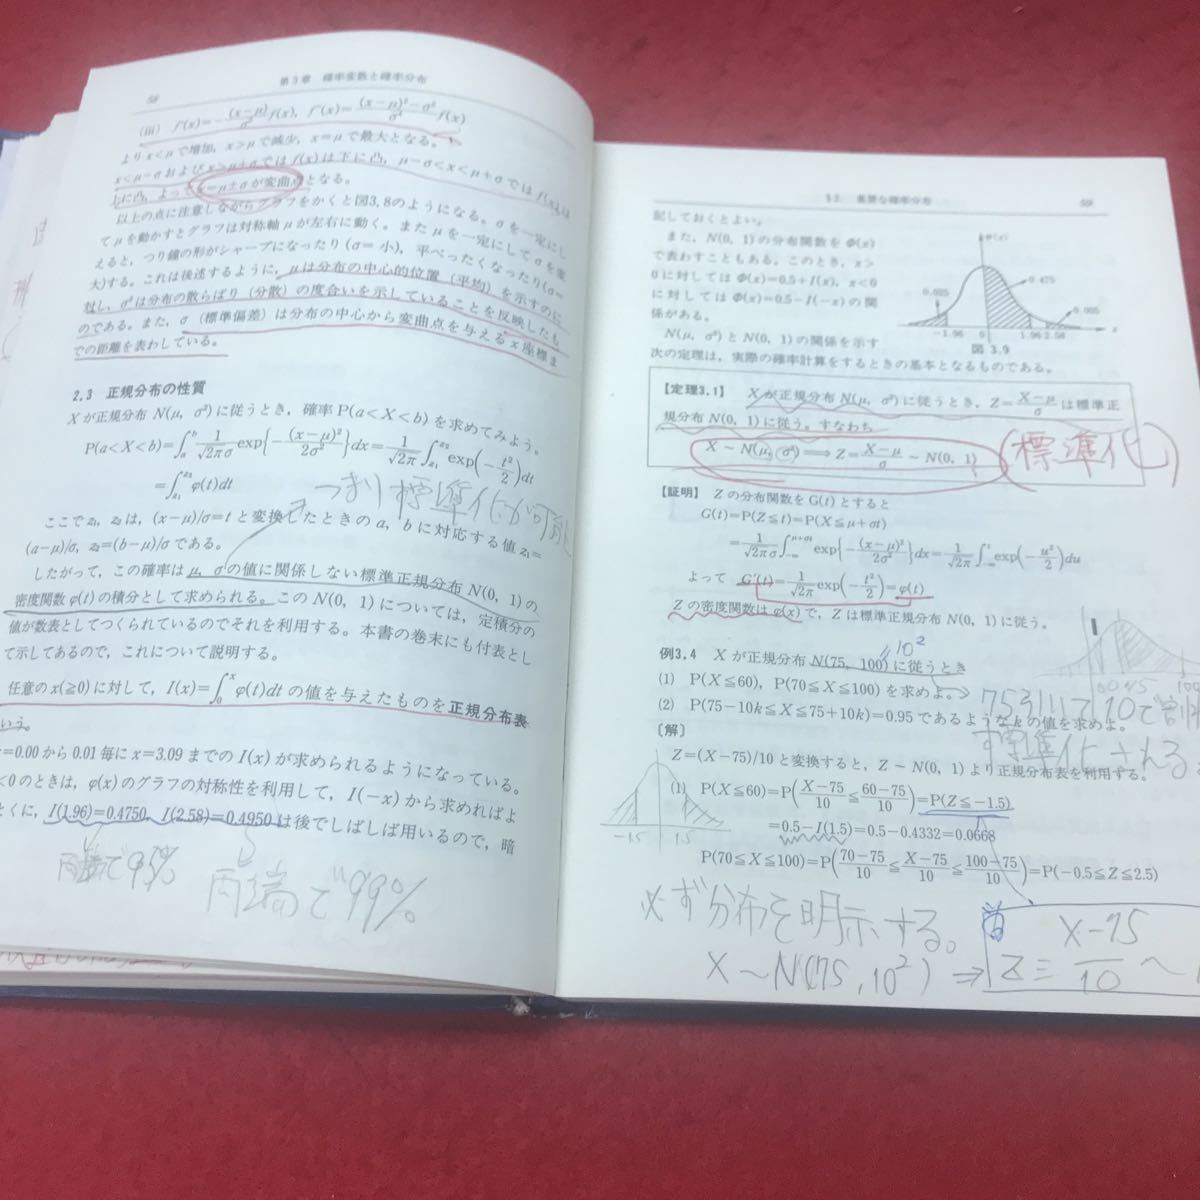 58
第3章 確率変数と確率分布
(iii) f′(x)=−(x−μ)/σ² f(x), f″(x)=(x−μ)²−σ²/σ⁴ f(x)
よりx<μで増加, x>μで減少, x=μで最大となる。
x<μ−σおよびx>μ+σではf(x)は下に凸, μ−σ<x<μ+σではf(x)は
上に凸, よってx=μ±σが変曲点となる。
以上の点に注意しながらグラフをかくと図3.8のようになる。σを一定にし
てμを動かすとグラフは対称軸μが左右に動く。またμを一定にしてσを変
えると, つり鐘の形がシャープになったり(σ=小), 平べったくなったり(σ=
大)する。これは後述するように, μは分布の中心的位置(平均)を示すのに
対し, σ²は分布の散らばり(分散)の度合いを示していることを反映したも
のである。また, σ(標準偏差)は分布の中心から変曲点を与えるx座標ま
での距離を表わしている。
2.3 正規分布の性質
Xが正規分布N(μ, σ²)に従うとき, 確率P(a<X<b)を求めてみよう。
P(a<X<b)=∫ₐᵇ 1/√2πσ exp{−(x−μ)²/2σ²}dx=1/√2π ∫z₁z₂ exp(−t²/2)dt
=∫z₁z₂ φ(t)dt
つまり標準化が可能
ここでz₁, z₂は, (x−μ)/σ=tと変換したときのa, bに対応する値z₁=
(a−μ)/σ, z₂=(b−μ)/σである。
したがって, この確率はμ, σの値に関係しない標準正規分布N(0, 1)の
密度関数φ(t)の積分として求められる。このN(0, 1)については, 定積分の
値が数表としてつくられているのでそれを利用する。本書の巻末にも付表とし
て示してあるので, これについて説明する。
任意のx(≧0)に対して, I(x)=∫₀ˣ φ(t)dtの値を与えたものを正規分布表
いう。
=0.00から0.01毎にx=3.09までのI(x)が求められるようになっている。
<0のときは, φ(x)のグラフの対称性を利用して, I(−x)から求めればよ
とくに, I(1.96)=0.4750, I(2.58)=0.4950は後でしばしば用いるので, 暗
両端で95%
両端で99%
§2. 重要な確率分布
59
記しておくとよい。
また, N(0, 1)の分布関数をΦ(x)
で表わすこともある。このとき, x>
0に対してはΦ(x)=0.5+I(x), x<0
に対してはΦ(x)=0.5−I(−x)の関
係がある。
φ(x)
0.475
0.025
0.005
−1.96 0 1.96 2.58 x
図 3.9
N(μ, σ²)とN(0, 1)の関係を示す
次の定理は, 実際の確率計算をするときの基本となるものである。
【定理3.1】 Xが正規分布N(μ, σ²)に従うとき, Z=X−μ/σは標準正
規分布N(0, 1)に従う。すなわち
X ~ N(μ, σ²) ⟹ Z=X−μ/σ ~ N(0, 1)
(標準化)
【証明】 Zの分布関数をG(t)とすると
G(t)=P(Z≦t)=P(X≦μ+σt)
=1/√2πσ ∫−∞μ+σt exp{−(x−μ)²/2σ²}dx=1/√2π ∫−∞t exp(−u²/2)du
よって G′(t)=1/√2π exp(−t²/2)=φ(t)
Zの密度関数はφ(x)で, Zは標準正規分布N(0, 1)に従う。
10²
例3.4 Xが正規分布N(75, 100)に従うとき
(1) P(X≦60), P(70≦X≦100)を求めよ。
(2) P(75−10k≦X≦75+10k)=0.95であるようなkの値を求めよ。
75引いて10で割
標準化される
〔解〕
Z=(X−75)/10と変換すると, Z ~ N(0, 1)より正規分布表を利用する。
(1) P(X≦60)=P(X−75/10≦60−75/10)=P(Z≦−1.5)
=0.5−I(1.5)=0.5−0.4332=0.0668
P(70≦X≦100)=P(70−75/10≦X−75/10≦100−75/10)=P(−0.5≦Z≦2.5)
−1.5 1.5
必ず分布を明示する。
X~N(75, 10²) ⇒
Z≡X−75/10 ~